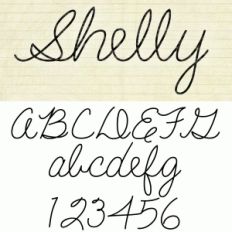 Shelly
ABCDEFG
abcdefg
123456